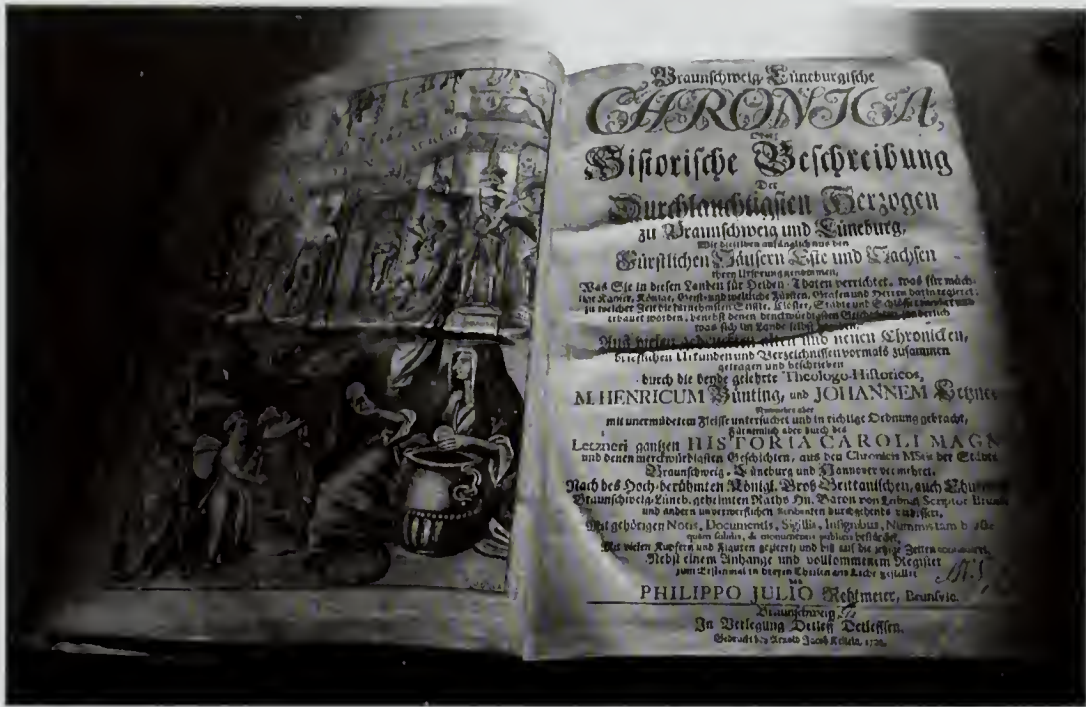 Braunschweig-Lüneburgische
CHRONICA,
Oder:
Historische Beschreibung
Der
Durchlauchtigsten Herzogen
zu Braunschweig und Lüneburg,
Wie dieselben anfänglich aus den
Fürstlichen Häusern Este und Sachsen
ihren Ursprung genommen,
Was Sie in diesen Landen für Helden-Thaten verrichtet, was für mäch-
tige Kayser, Könige, Geist- und weltliche Fürsten, Grafen und Herren darin regieret,
zu welcher Zeit die fürnehmsten Stifte, Klöster, Städte und Schlösser
erbauet worden, benebst denen denckwürdigsten Geschichten, sonderlich
was sich im Lande selbst
Aus vielen gedruckten alten und neuen Chronicken,
brieflichen Urkunden und Verzeichnissen vormals zusammen
getragen und beschrieben
durch die beyde gelehrte Theologo-Historicos,
M. HENRICUM Bünting, und JOHANNEM Letzner
Nunmehro aber
mit unermüdetem Fleisse untersuchet und in richtige Ordnung gebracht,
Fürnemlich aber durch des
Letzneri gantzen HISTORIA CAROLI MAGN
und denen merckwürdigsten Geschichten, aus den Chronicis MStis der Städte
Braunschweig, Lüneburg und Hannover vermehret,
Nach des Hoch-berühmten Königl. Gros-Brittanischen, auch
Braunschweig-Lüneb. geheimten Raths Hn. Baron von Leibnitz Scriptor. Bruns
und andern unverwerflichen durchgehends
Mit gehörigen Notis, Documentis, Sigillis, Insignibus, Nummis tam
quam solidis, & monumentis publicis bestärcket,
Mit vielen Kupfern und Figuren gezieret, und biß auf die jetzige Zeiten
Nebst einem Anhange und vollkommenem Register
zum Erstenmal in dreyen Theilen ans Licht gestellet
von
PHILIPPO JULIO Rehtmeier, Brunsvic.
Braunschweig,
In Verlegung Detleff Detleffsen,
Gedruckt bey Arnold Jacob